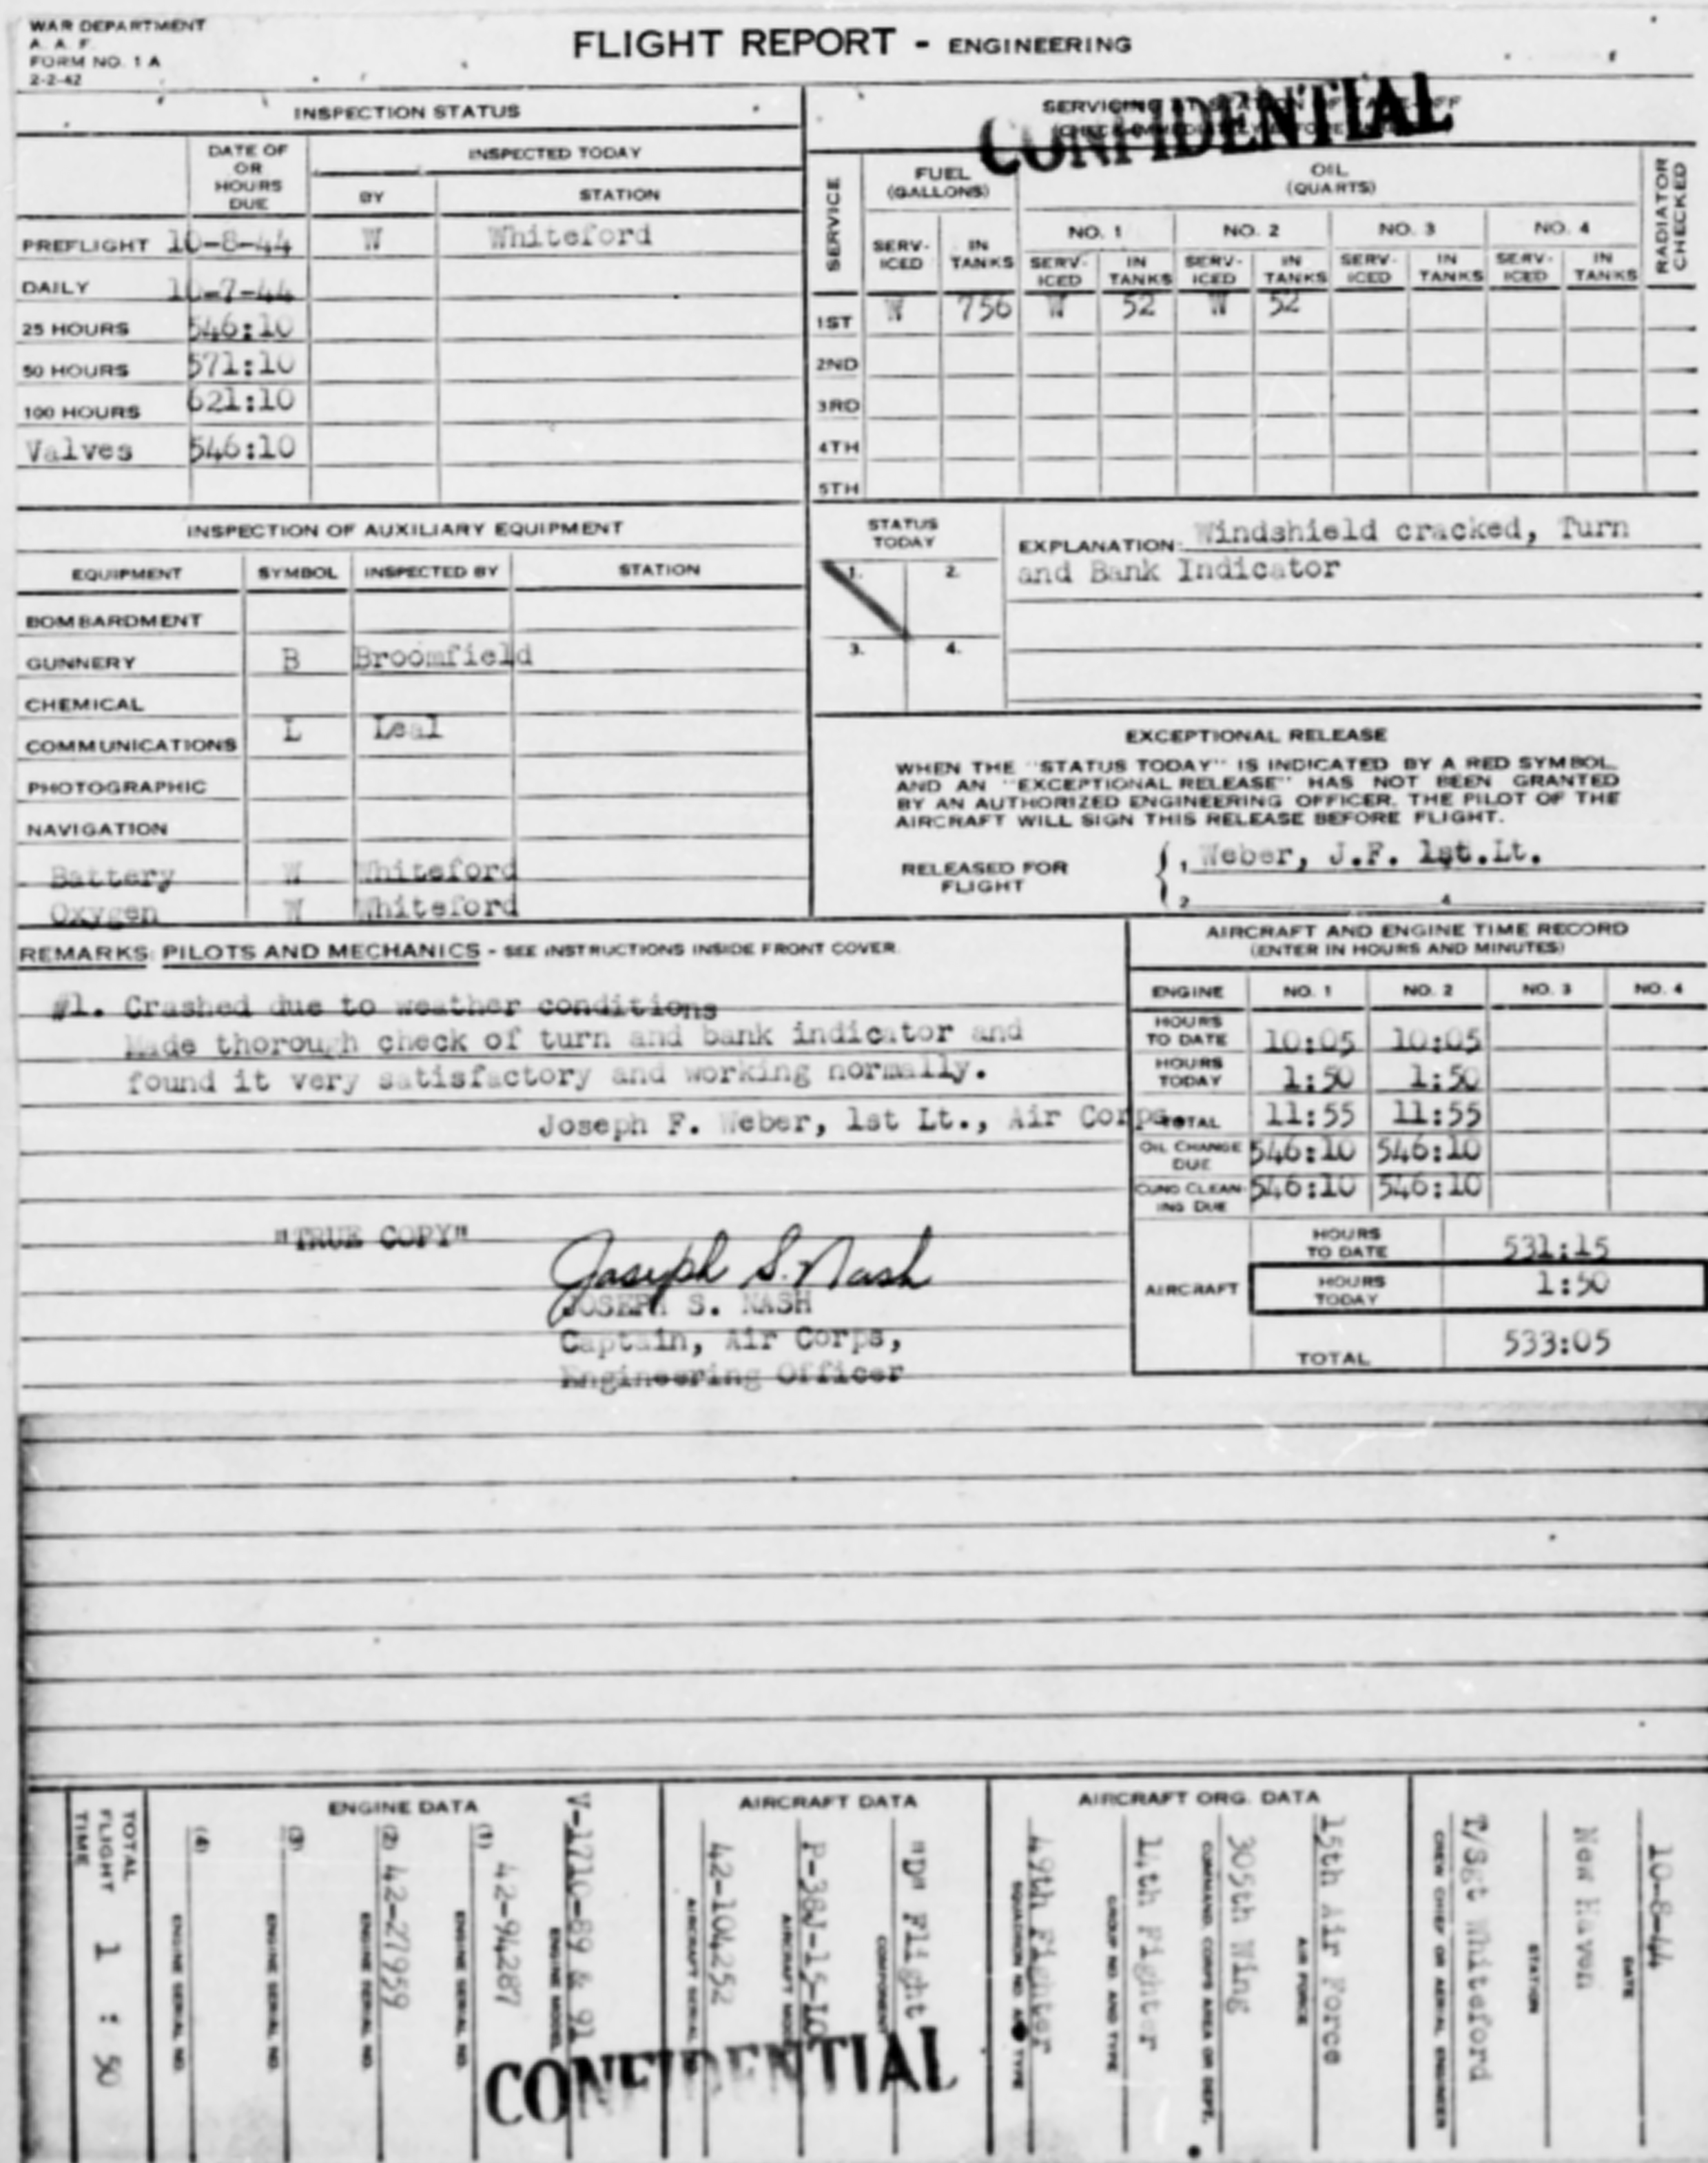 WAR DEPARTMENT
A. A. F.
FORM NO. 1 A
2-2-42
FLIGHT REPORT - ENGINEERING
CONFIDENTIAL
INSPECTION STATUS
DATE OF OR HOURS DUE
INSPECTED TODAY
BY STATION
PREFLIGHT 10-8-44 W Whiteford
DAILY 10-7-44
25 HOURS 546:10
50 HOURS 571:10
100 HOURS 621:10
Valves 546:10
SERVICE
FUEL (GALLONS)
OIL (QUARTS)
RADIATOR CHECKED
NO. 1 NO. 2 NO. 3 NO. 4
SERV-ICED IN TANKS SERV-ICED IN TANKS SERV-ICED IN TANKS SERV-ICED IN TANKS SERV-ICED IN TANKS
1ST W 756 W 52 W 52
2ND
3RD
4TH
5TH
INSPECTION OF AUXILIARY EQUIPMENT
EQUIPMENT SYMBOL INSPECTED BY STATION
BOMBARDMENT
GUNNERY B Broomfield
CHEMICAL
COMMUNICATIONS L Leal
PHOTOGRAPHIC
NAVIGATION
Battery W Whiteford
Oxygen W Whiteford
STATUS TODAY
1. 2.
3. 4.
EXPLANATION: Windshield cracked, Turn
and Bank Indicator
EXCEPTIONAL RELEASE
WHEN THE "STATUS TODAY" IS INDICATED BY A RED SYMBOL
AND AN "EXCEPTIONAL RELEASE" HAS NOT BEEN GRANTED
BY AN AUTHORIZED ENGINEERING OFFICER, THE PILOT OF THE
AIRCRAFT WILL SIGN THIS RELEASE BEFORE FLIGHT.
RELEASED FOR FLIGHT
1 Weber, J.F. 1st.Lt.
2 4
REMARKS: PILOTS AND MECHANICS - SEE INSTRUCTIONS INSIDE FRONT COVER.
#1. Crashed due to weather conditions
Made thorough check of turn and bank indicator and
found it very satisfactory and working normally.
Joseph F. Weber, 1st Lt., Air Corps
"TRUE COPY"
Joseph S. Nash
JOSEPH S. NASH
Captain, Air Corps,
Engineering Officer
AIRCRAFT AND ENGINE TIME RECORD
(ENTER IN HOURS AND MINUTES)
ENGINE NO. 1 NO. 2 NO. 3 NO. 4
HOURS TO DATE 10:05 10:05
HOURS TODAY 1:50 1:50
TOTAL 11:55 11:55
OIL CHANGE DUE 546:10 546:10
CUNO CLEAN-ING DUE 546:10 546:10
AIRCRAFT
HOURS TO DATE 531:15
HOURS TODAY 1:50
TOTAL 533:05
TOTAL FLIGHT TIME 1 : 50
ENGINE DATA
(4) ENGINE SERIAL NO.
(3) ENGINE SERIAL NO.
(2) 42-27959 ENGINE SERIAL NO.
(1) 42-94287 ENGINE SERIAL NO.
V-1710-89 & 91 ENGINE MODEL
AIRCRAFT DATA
42-104252 AIRCRAFT SERIAL
P-38J-15-LO AIRCRAFT MODEL
"D" Flight COMPONENT
AIRCRAFT ORG. DATA
49th Fighter SQUADRON NO. AND TYPE
14th Fighter GROUP NO. AND TYPE
305th Wing COMMAND, CORPS AREA OR DEPT.
15th Air Force AIR FORCE
T/Sgt Whiteford CREW CHIEF OR AERIAL ENGINEER
New Haven STATION
10-8-44 DATE
CONFIDENTIAL